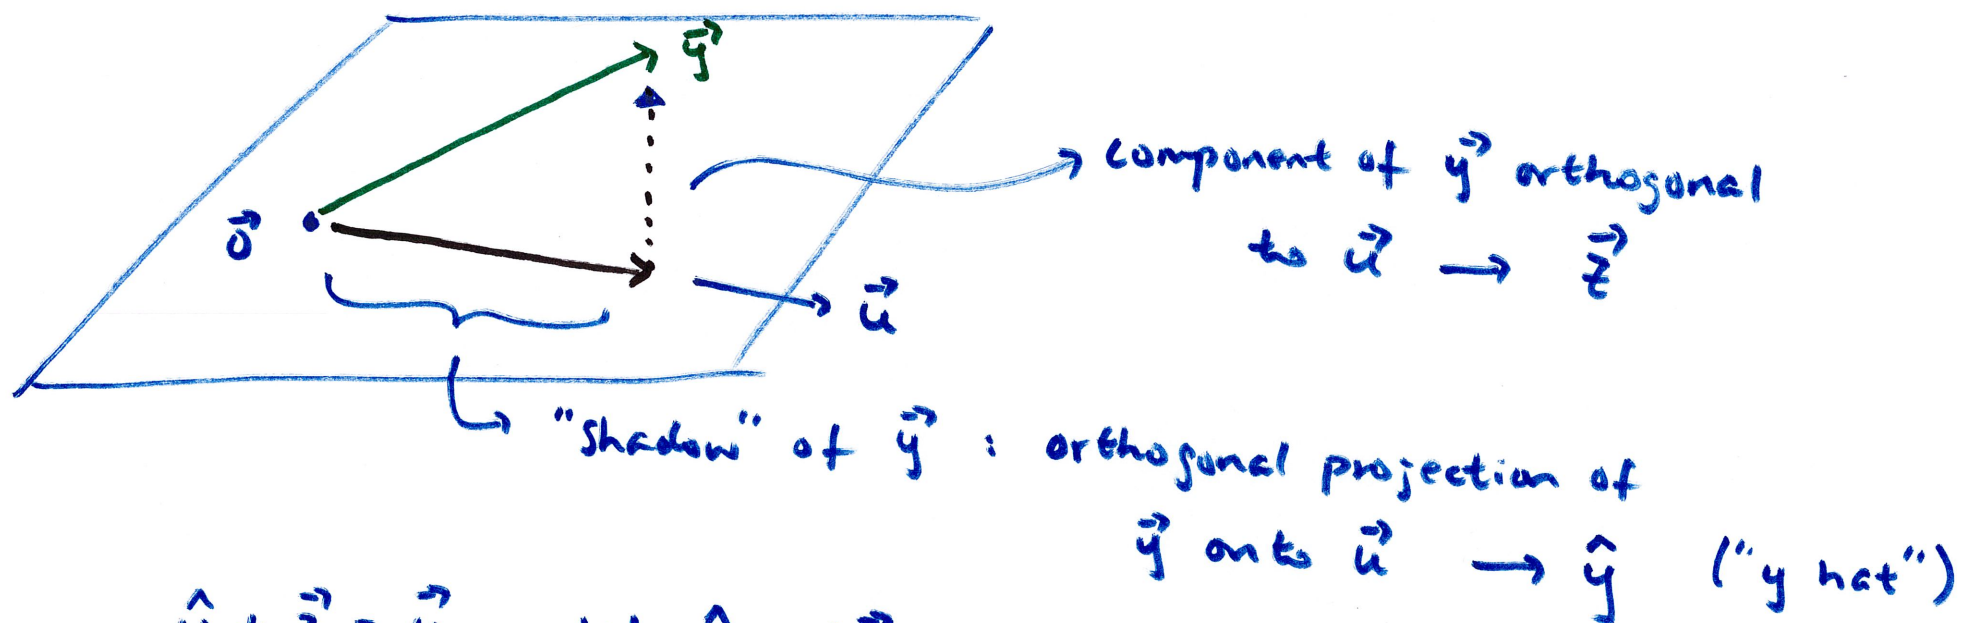 y⃗
component of y⃗ orthogonal
0⃗
to u⃗ → z⃗
u⃗
"shadow" of y⃗ : orthogonal projection of
y⃗ onto u⃗ → ŷ ("y hat")